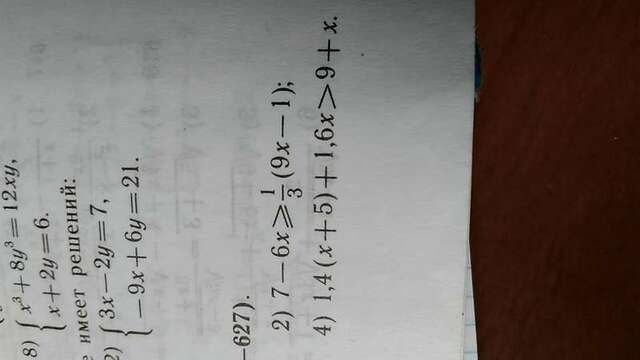 8) { x³ + 8y³ = 12xy,
x + 2y = 6.
имеет решений:
2) { 3x − 2y = 7,
−9x + 6y = 21.
−627).
2) 7 − 6x ⩾ 1/3 (9x − 1);
4) 1,4 (x + 5) + 1,6x > 9 + x.